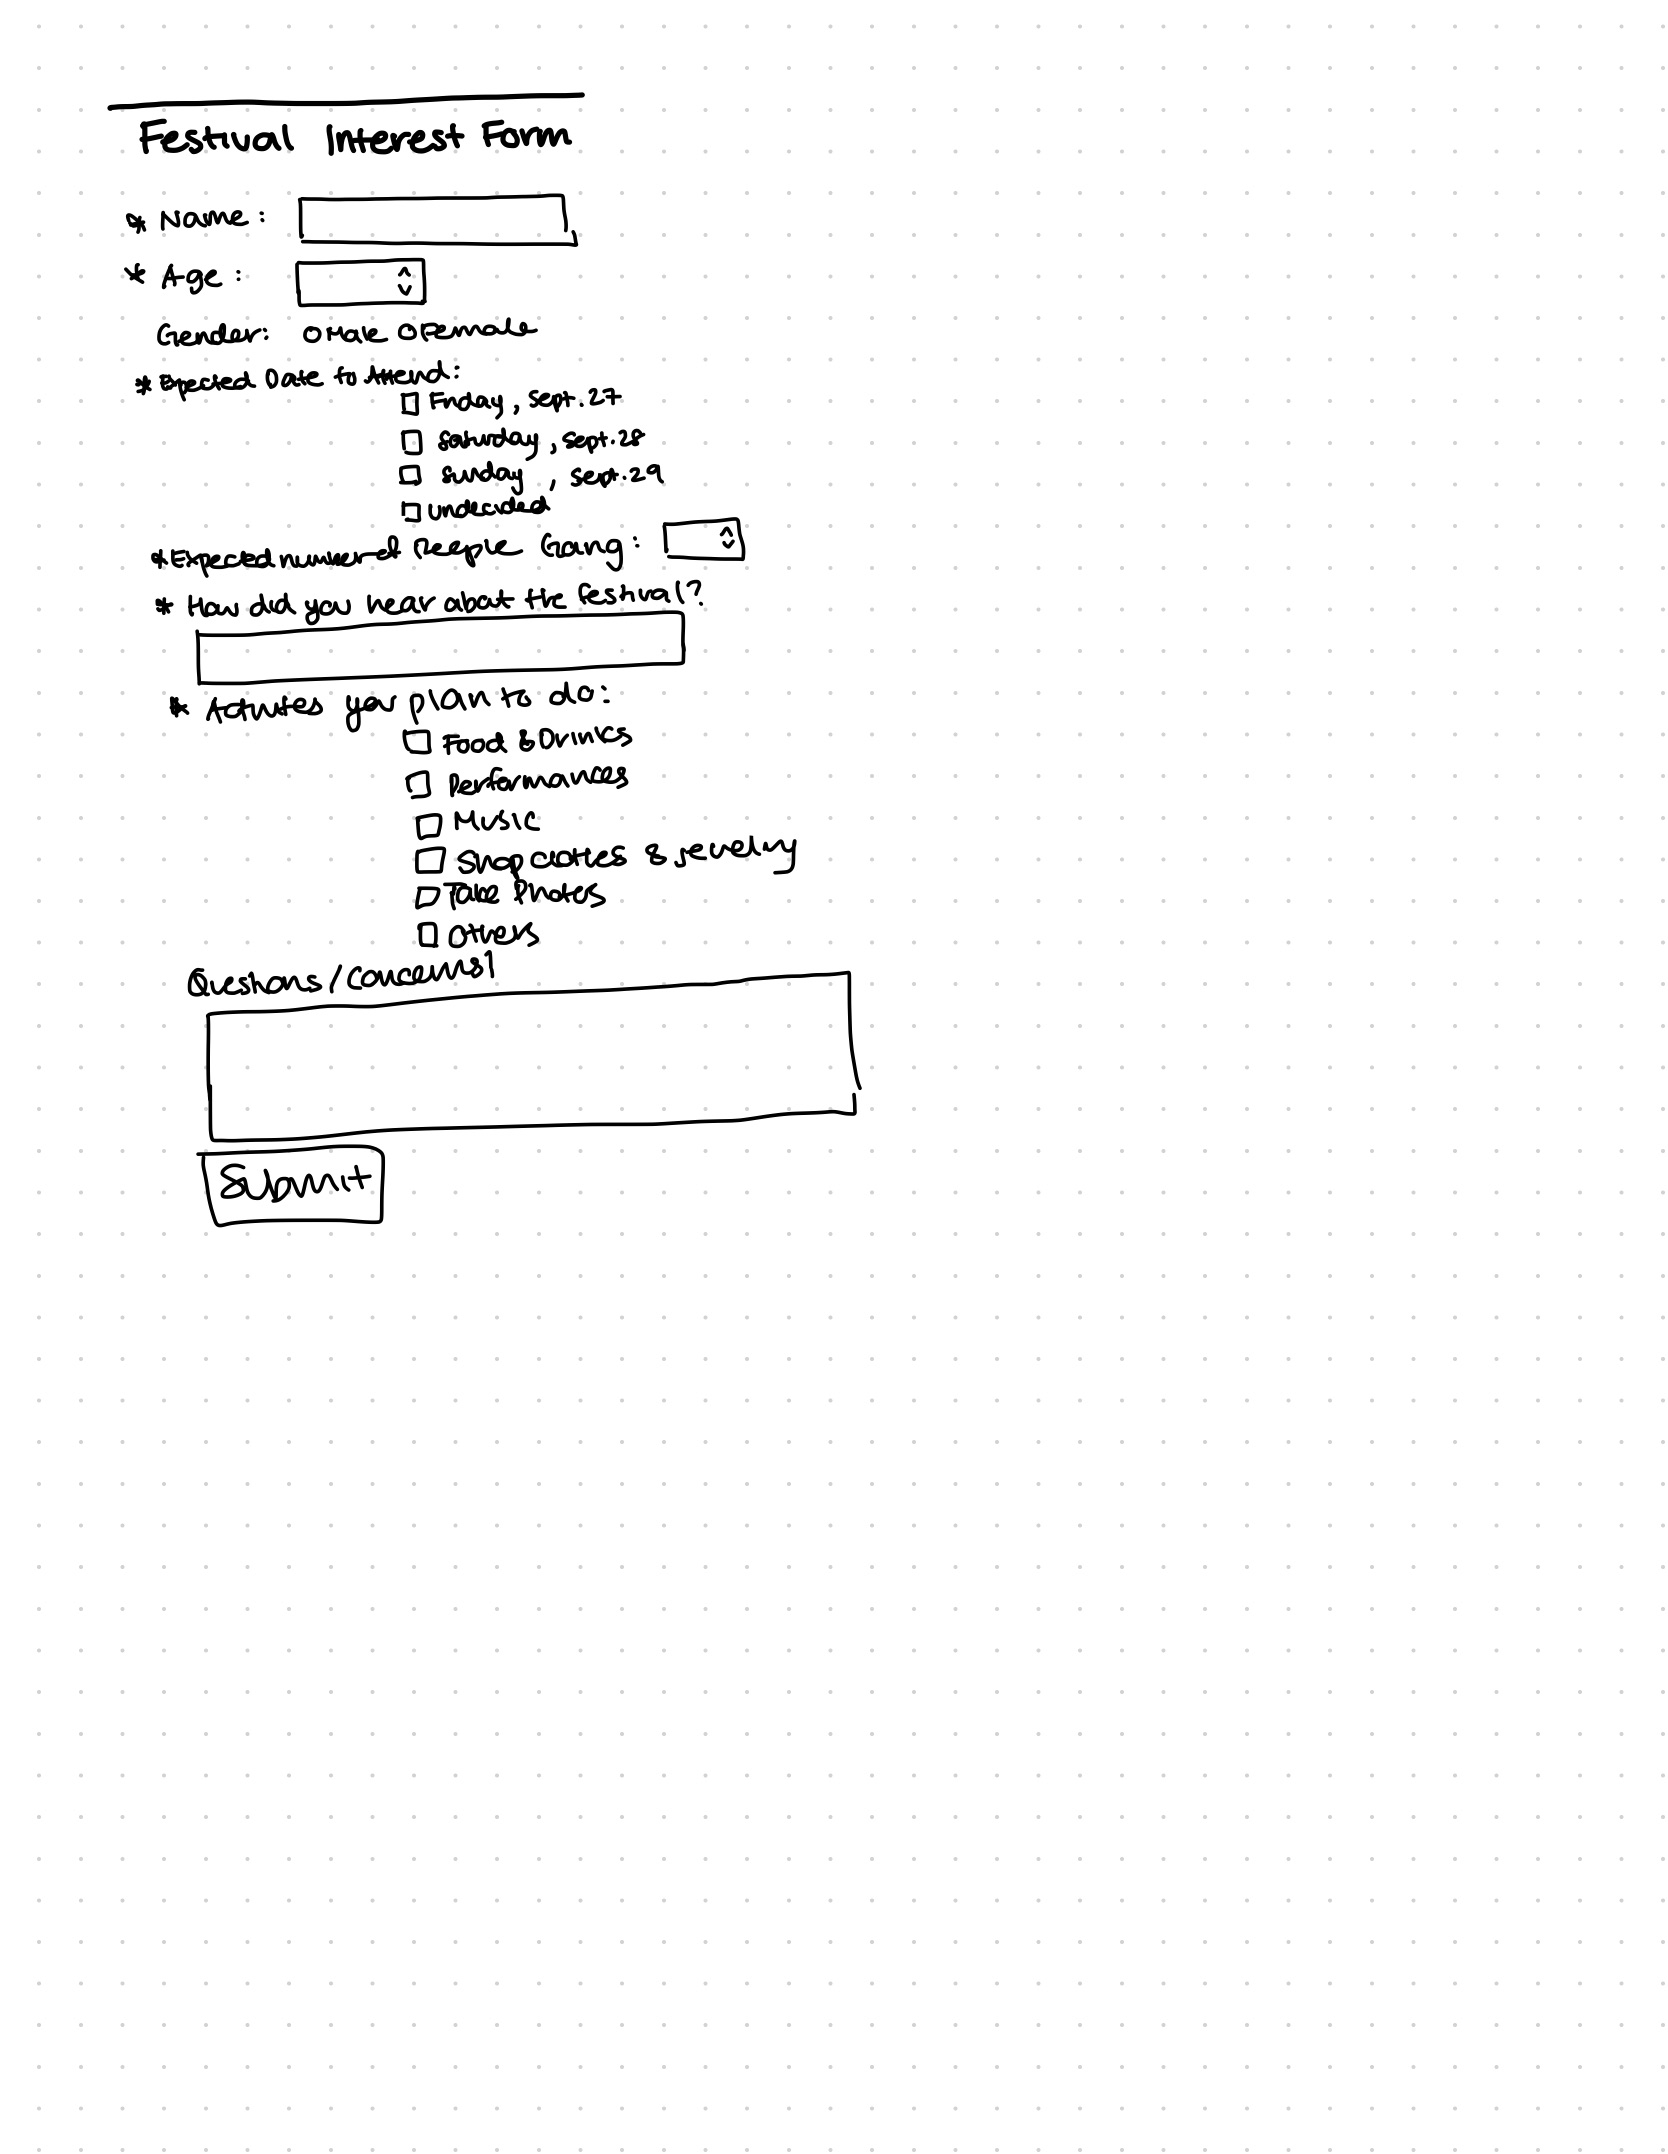 Festival Interest Form
* Name:
* Age:
Gender: O Male O Female
* Expected Date to Attend:
Friday, Sept. 27
Saturday, Sept. 28
Sunday, Sept. 29
undecided
* Expected number of People Going:
* How did you hear about the festival?
* Activites your plan to do:
Food & Drinks
Performances
Music
Shop clothes & jewelry
Take Photos
Others
Questions/Concerns?
Submit